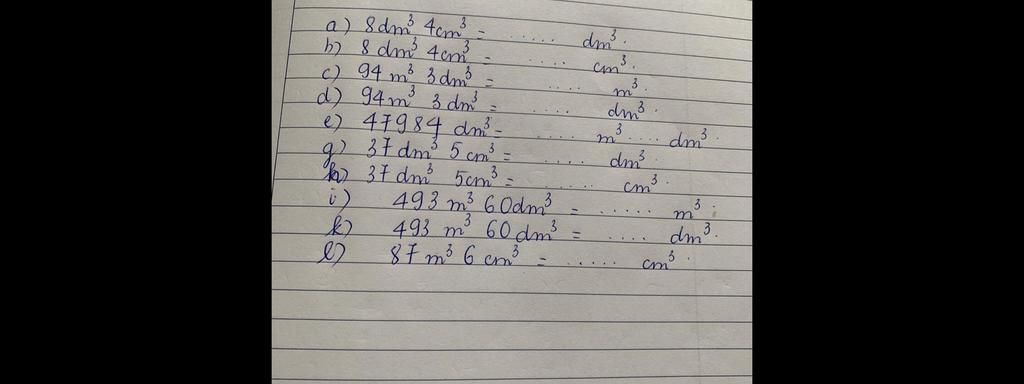 a) 8dm³ 4cm³ = ..... dm³.
b) 8 dm³ 4cm³ = .... cm³.
c) 94 m³ 3dm³ = .... m³.
d) 94m³ 3dm³ = .... dm³.
e) 47984 dm³ = .... m³ .... dm³.
g) 37dm³ 5cm³ = .... dm³.
h) 37 dm³ 5cm³ = ..... cm³.
i) 493 m³ 60dm³ = ..... m³;
k) 493 m³ 60 dm³ = .... dm³.
l) 87m³ 6 cm³ = ..... cm³.